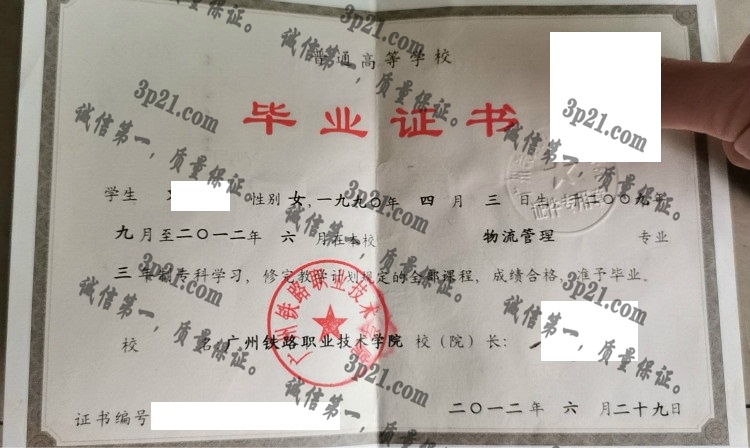 普通高等学校
毕业证书
学生 性别 女,一九九〇年 四 月 三 日生,于二〇〇九年
九 月至二〇一二年 六 月在本校 物流管理 专业
三 年制专科学习,修完教学计划规定的全部课程,成绩合格,准予毕业。
校 名 广州铁路职业技术学院 校(院)长:
证书编号
二〇一二年 六 月二十九日
广州铁路职业技术学院
3p21.com
诚信第一,质量保证。
3p21.com
诚信第一,质量保证。
3p21.com
诚信第一,质量保证。
3p21.com
诚信第一,质量保证。
3p21.com
诚信第一,质量保证。
3p21.com
诚信第一,质量保证。
3p21.com
诚信第一,质量保证。
3p21.com
诚信第一,质量保证。